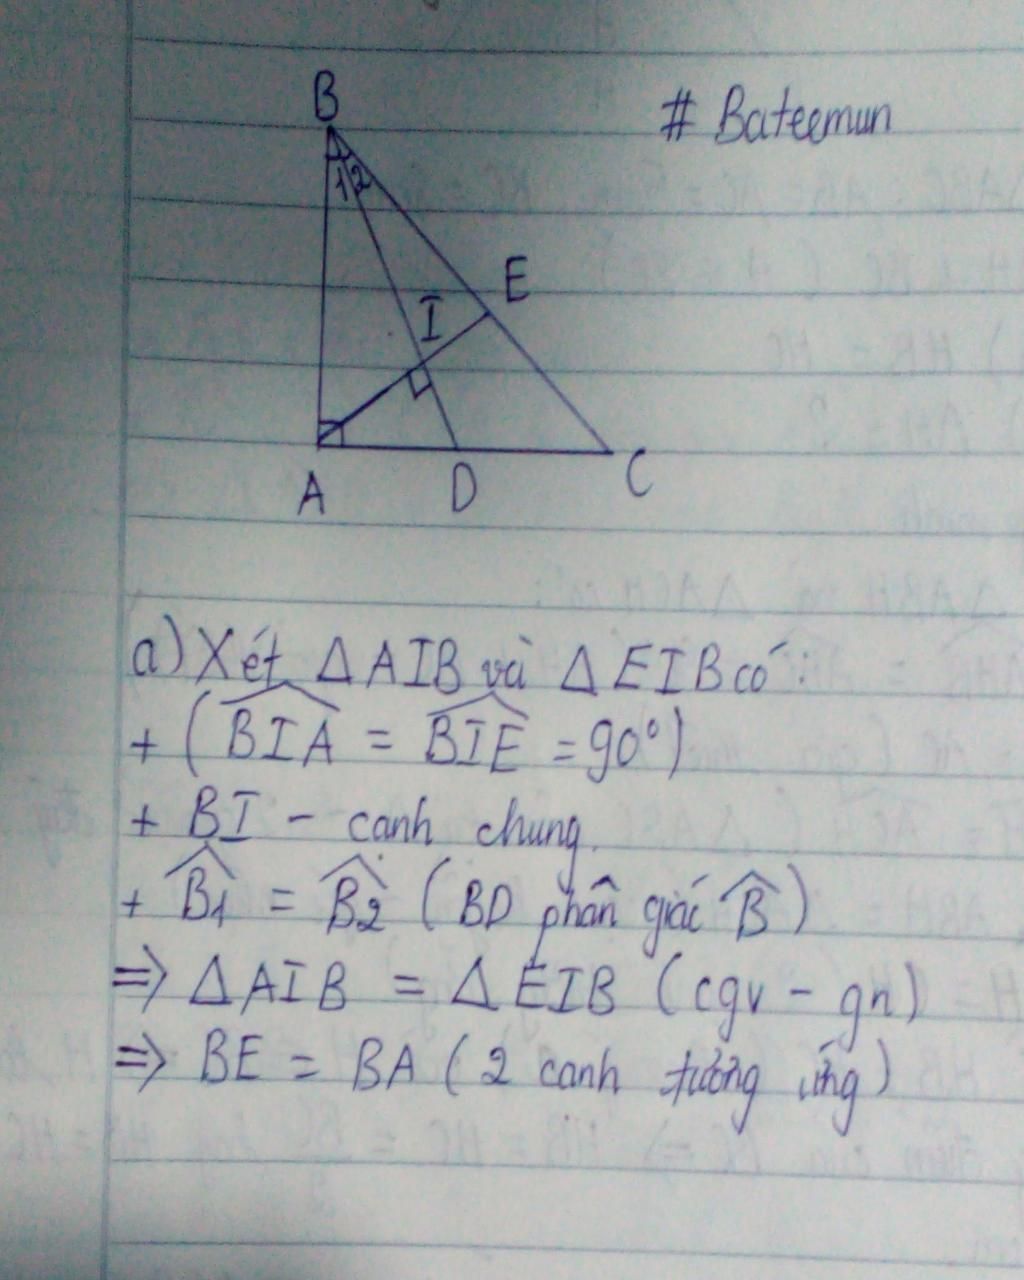 # Bateemun
B
1 2
E
I
A D C
a) Xét ΔAIB và ΔEIB có:
+ (\widehat{BIA} = \widehat{BIE} = 90°)
+ BI - canh chung.
+ \widehat{B1} = \widehat{B2} (BD phân giác \widehat{B})
=> ΔAIB = ΔEIB (cgv - gn)
=> BE = BA (2 canh tương ứng)